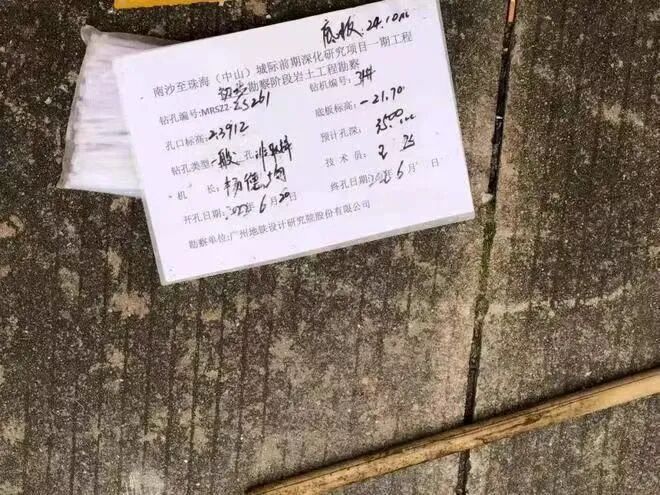 底板:24.10m
南沙至珠海（中山）城际前期深化研究项目一期工程
初步勘察阶段岩土工程勘察
钻孔编号:MRSZ2-ZS261 钻机编号:3#
孔口标高:2.3912 底板标高:-21.70
钻孔类型:一般孔 非取样 预计孔深:35.00m
机 长:杨德 技 术 员:王
开孔日期:2022年6月20日 终孔日期:2022年6月 日
勘察单位:广州地铁设计研究院股份有限公司